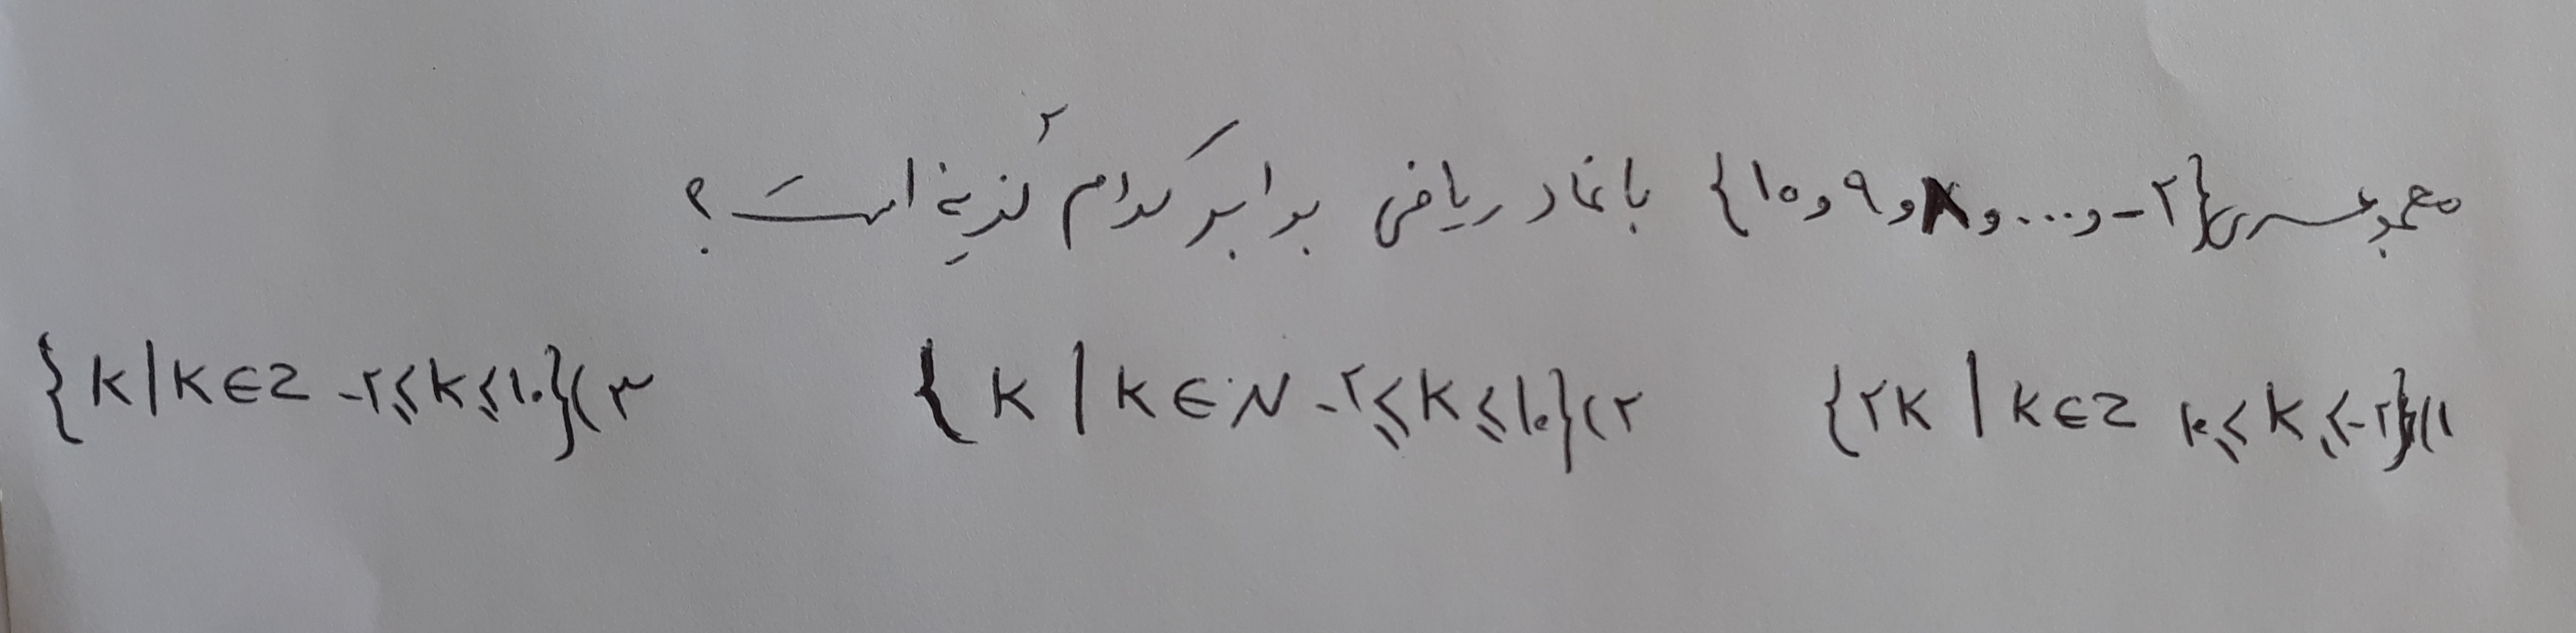 مجموعه‌ی {۲- و ... و ۸ و ۹ و ۱۰} با نماد ریاضی برابر کدام گزینه است؟
۱) {۲K | K∈Z ۱۰≤K≤-۲} ۲) {K | K∈N -۲≤K≤۱۰} ۳) {K | K∈Z -۲≤K≤۱۰}